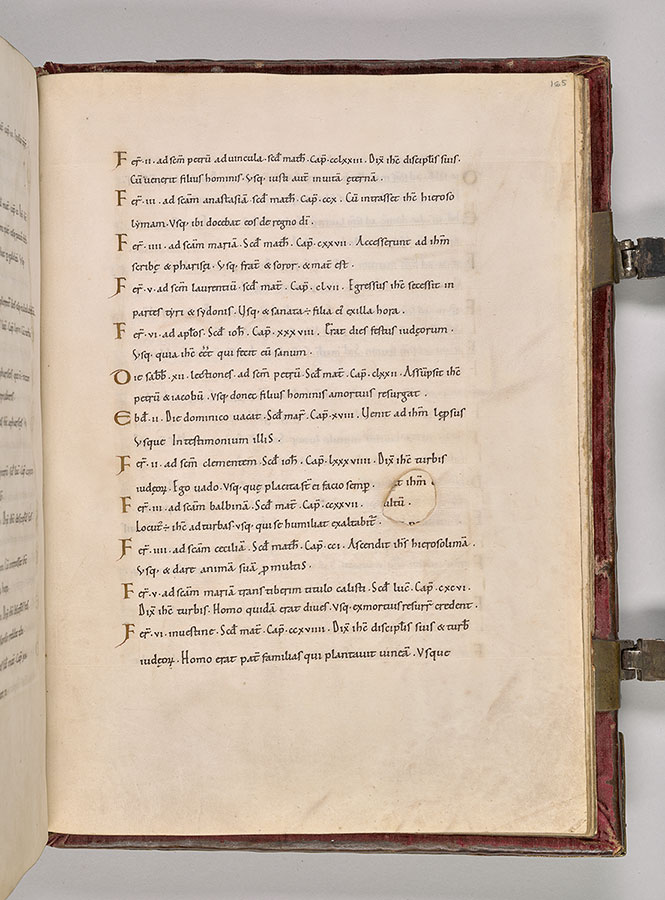 125
Fer̄·II· ad sc̄m petrū ad vincula·sc̄d math̄·Cap̄·cclxxiii· Dix̄ ih̄c disciplis suis·
Cū venerit filius hominis·Vsq· iusti aut̄ in vitā ęternā·
Fer̄·III· ad sc̄am anastasiā sc̄d math̄·Cap̄·ccx· Cū intrasset ih̄c hieroso
lymam·Vsq· ibi docebat eos de regno dī·
Fer̄·IIII· ad sc̄am mariā·Sc̄d math̄·Cap̄·cxxvii· Accesserunt ad ih̄m
scribę & pharisei· Vsq· frat̄ & soror·& mat̄ est·
Fer̄·V· ad sc̄m laurentiū sc̄d mat̄· Cap̄·clvii· Egressus ih̄c secessit in
partes tyri & sydonis· Vsq· & sanata÷ filia ei' ex illa hora·
Fer̄·VI· ad apl̄os·Sc̄d ioh̄· Cap̄·xxxviii· Erat dies festus iudęorum·
Vsq· quia ih̄c eēt qui fecit eū sanum·
Die sabb̄·XII·lectiones·ad sc̄m petrū·Sc̄d mat̄·Cap̄·clxxii· Assūpsit ih̄c
petrū & iacobū·Vsq· donec filius hominis a mortuis resurgat·
Ebd̄·II· Die dominico vacat·Sc̄d mar̄·Cap̄·xviii· Venit ad ih̄m lępsus
Vsque In testimonium illis·
Fer̄·II· ad sc̄m clementem·Sc̄d ioh̄· Cap̄·lxxxviiii· Dix̄ ih̄c turbis
iudęoꝝ· Ego vado·Vsq· quę placita st̄ ei facio semp̄· t ih̄m
Fer̄·III· ad sc̄am balbinā·Sc̄d mat̄·Cap̄·ccxxvii· ultū·
Locut̄÷ ih̄c ad turbas·vsq· qui se humiliat exaltabit̄·
Fer̄·IIII· ad sc̄am ceciliā·Sc̄d math̄·Cap̄·cci· Ascendit ih̄s hierosolimā·
Vsq· & dare animā suā p multis·
Fer̄·V· ad sc̄am mariā transtiberim titulo calisti·Sc̄d luc̄·Cap̄·cxcvi·
Dix̄ ih̄c turbis· Homo quidā erat dives·Vsq· ex mortuis resurr̄ credent·
Fer̄·VI· in vestine·Sc̄d mat̄·Cap̄·ccxviiii· Dix̄ ih̄c disciplis suis & turb̄
iudęoꝝ· Homo erat pat̄ familias qui plantavit vineā· Vsque